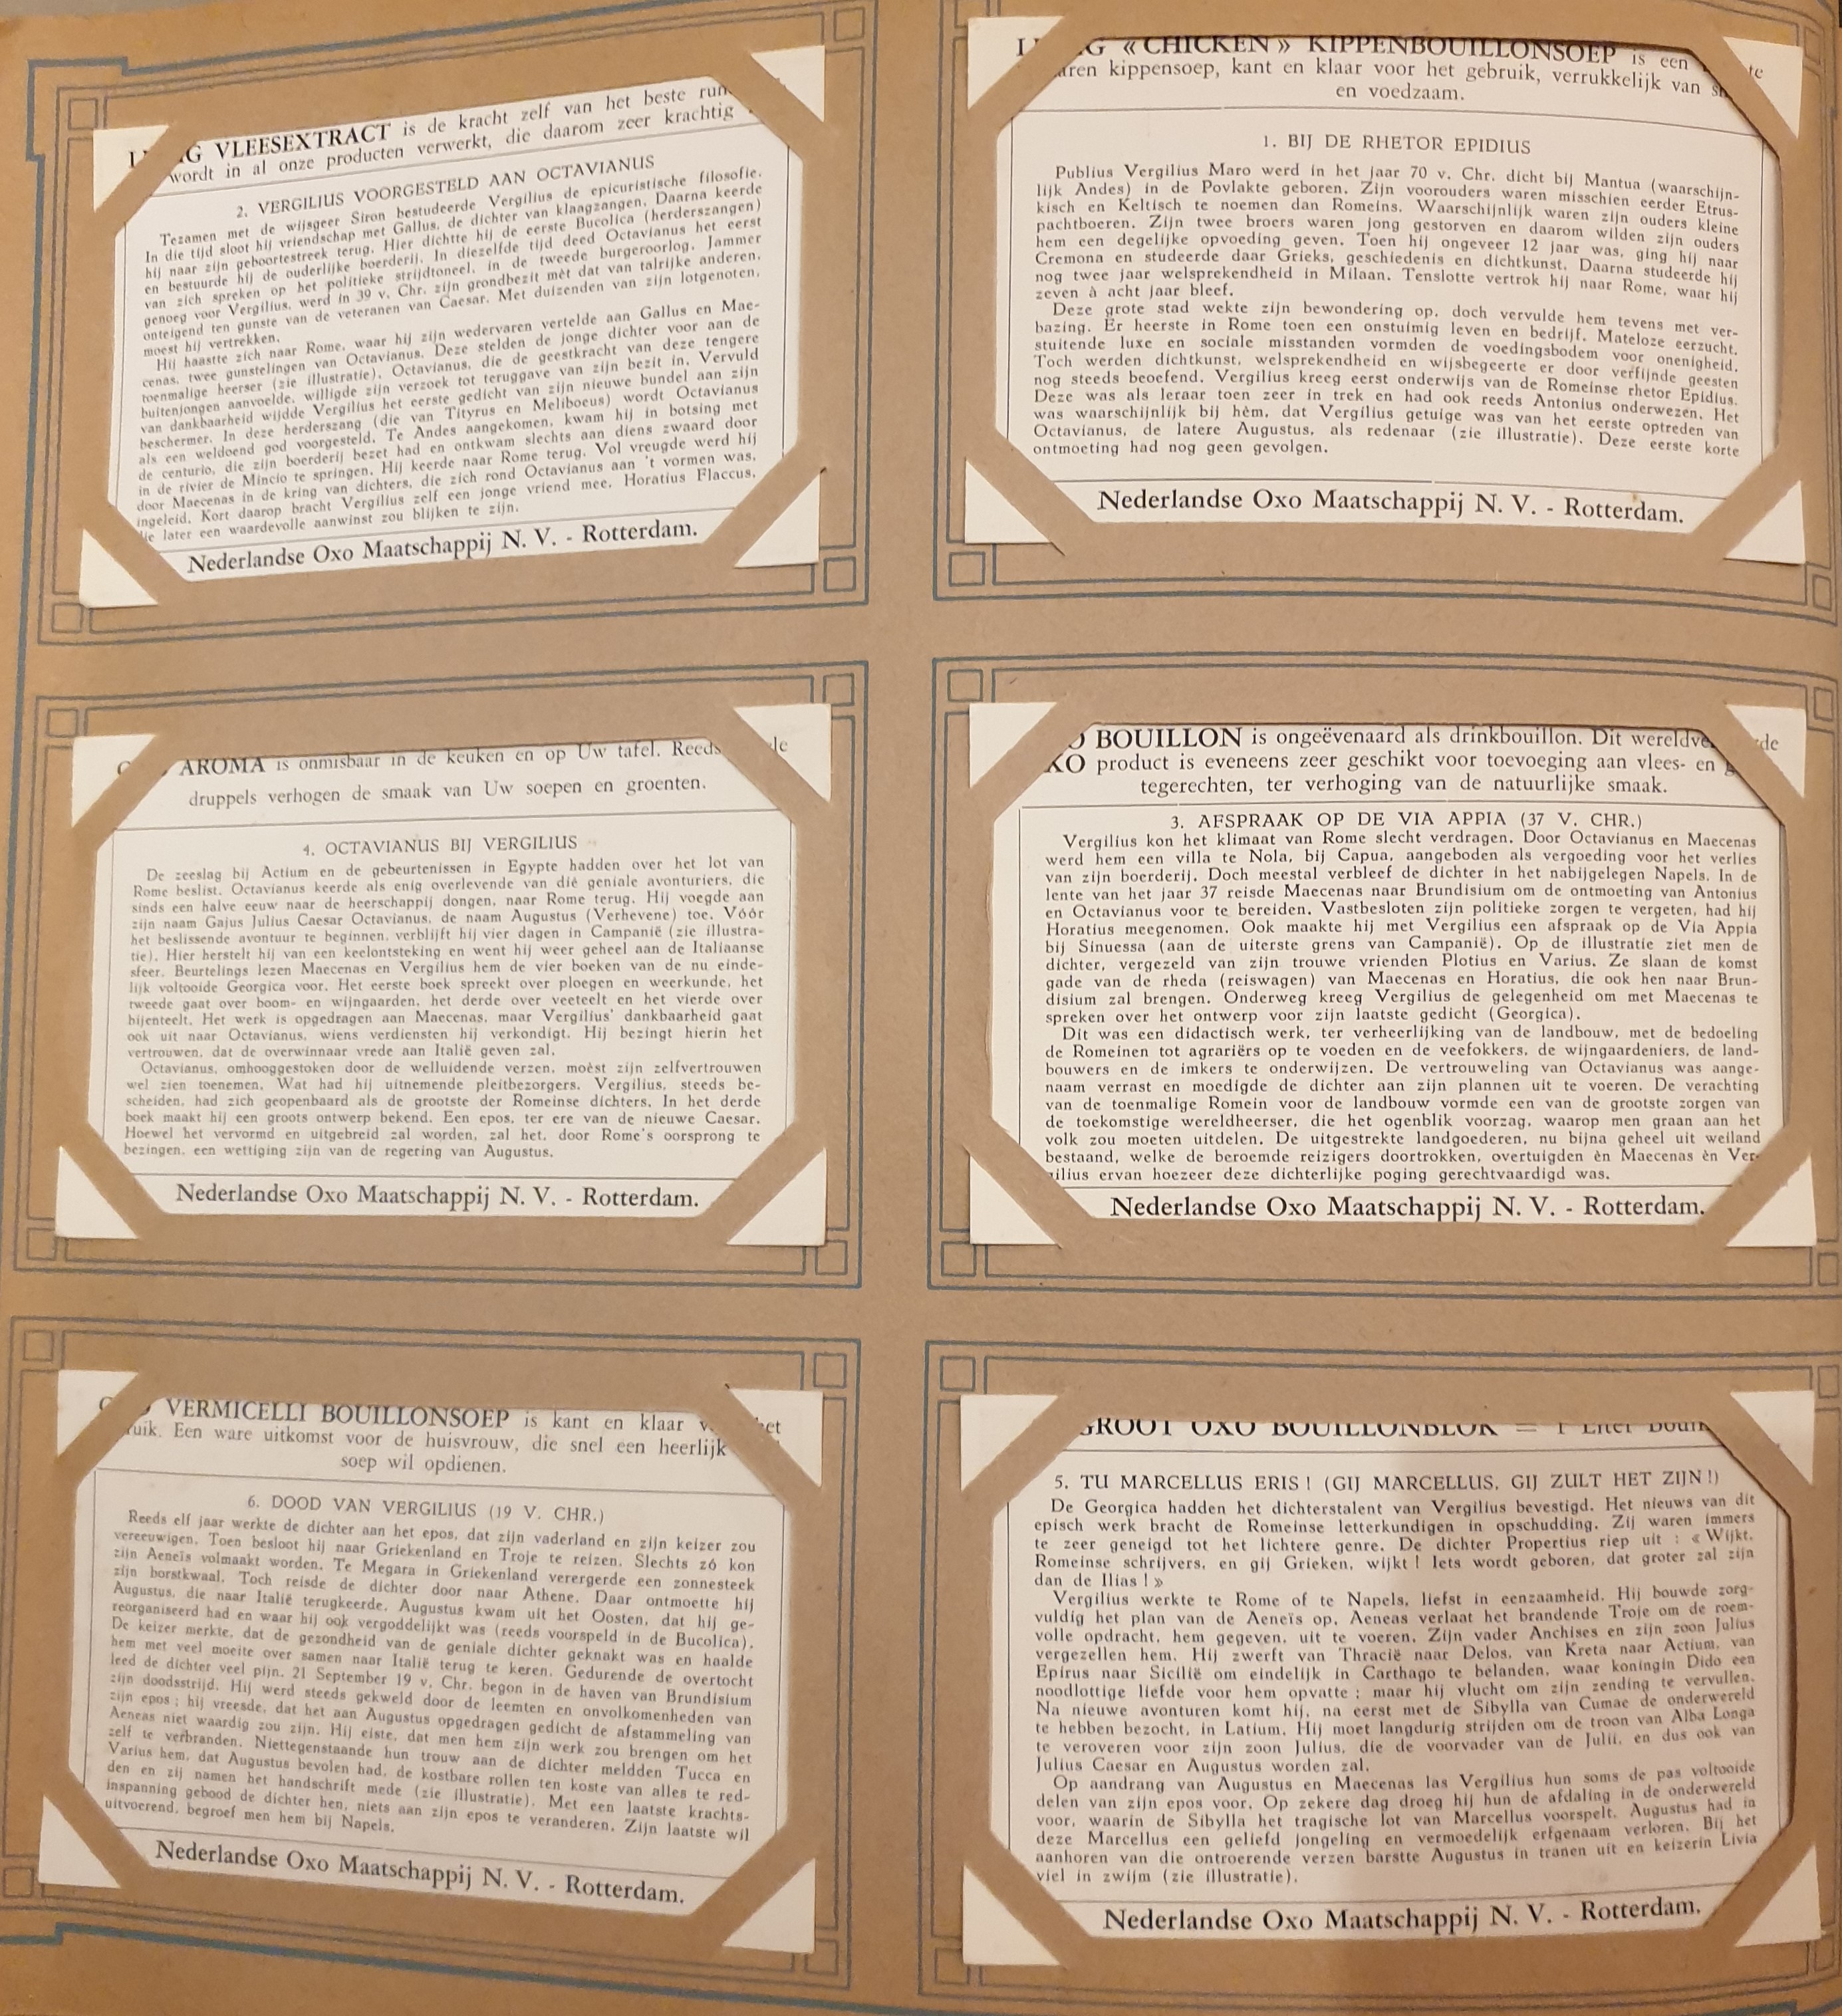 VLEESEXTRACT is de kracht zelf van het beste
wordt in al onze producten verwerkt, die daarom zeer krachtig
2. VERGILIUS VOORGESTELD AAN OCTAVIANUS
Tezamen met de wijsgeer Siron bestudeerde Vergilius de epicuristische filosofie.
In die tijd sloot hij vriendschap met Gallus, de dichter van klaagzangen. Daarna keerde
hij naar zijn geboortestreek terug. Hier dichtte hij de eerste Bucolica (herderszangen)
en bestuurde hij de ouderlijke boerderij. In diezelfde tijd deed Octavianus het eerst
van zich spreken op het politieke strijdtoneel, in de tweede burgeroorlog. Jammer
genoeg voor Vergilius, werd in 39 v. Chr. zijn grondbezit mèt dat van talrijke anderen,
onteigend ten gunste van de veteranen van Caesar. Met duizenden van zijn lotgenoten,
moest hij vertrekken.
Hij haastte zich naar Rome, waar hij zijn wedervaren vertelde aan Gallus en Mae-
cenas, twee gunstelingen van Octavianus. Deze stelden de jonge dichter voor aan de
toenmalige heerser (zie illustratie). Octavianus, die de geestkracht van deze tengere
buitenjongen aanvoelde, willigde zijn verzoek tot teruggave van zijn bezit in. Vervuld
van dankbaarheid wijdde Vergilius het eerste gedicht van zijn nieuwe bundel aan zijn
beschermer. In deze herderszang (die van Tityrus en Meliboeus) wordt Octavianus
als een weldoend god voorgesteld. Te Andes aangekomen, kwam hij in botsing met
de centurio, die zijn boerderij bezet had en ontkwam slechts aan diens zwaard door
in de rivier de Mincio te springen. Hij keerde naar Rome terug. Vol vreugde werd hij
door Maecenas in de kring van dichters, die zich rond Octavianus aan 't vormen was,
ingeleid. Kort daarop bracht Vergilius zelf een jonge vriend mee, Horatius Flaccus,
die later een waardevolle aanwinst zou blijken te zijn.
Nederlandse Oxo Maatschappij N. V. - Rotterdam.
« CHICKEN » KIPPENBOUILLONSOEP is een
kippensoep, kant en klaar voor het gebruik, verrukkelijk van
en voedzaam.
1. BIJ DE RHETOR EPIDIUS
Publius Vergilius Maro werd in het jaar 70 v. Chr. dicht bij Mantua (waarschijn-
lijk Andes) in de Povlakte geboren. Zijn voorouders waren misschien eerder Etrus-
kisch en Keltisch te noemen dan Romeins. Waarschijnlijk waren zijn ouders kleine
pachtboeren. Zijn twee broers waren jong gestorven en daarom wilden zijn ouders
hem een degelijke opvoeding geven. Toen hij ongeveer 12 jaar was, ging hij naar
Cremona en studeerde daar Grieks, geschiedenis en dichtkunst. Daarna studeerde hij
nog twee jaar welsprekendheid in Milaan. Tenslotte vertrok hij naar Rome, waar hij
zeven à acht jaar bleef.
Deze grote stad wekte zijn bewondering op, doch vervulde hem tevens met ver-
bazing. Er heerste in Rome toen een onstuimig leven en bedrijf. Mateloze eerzucht,
stuitende luxe en sociale misstanden vormden de voedingsbodem voor onenigheid.
Toch werden dichtkunst, welsprekendheid en wijsbegeerte er door verfijnde geesten
nog steeds beoefend. Vergilius kreeg eerst onderwijs van de Romeinse rhetor Epidius.
Deze was als leraar toen zeer in trek en had ook reeds Antonius onderwezen. Het
was waarschijnlijk bij hèm, dat Vergilius getuige was van het eerste optreden van
Octavianus, de latere Augustus, als redenaar (zie illustratie). Deze eerste korte
ontmoeting had nog geen gevolgen.
Nederlandse Oxo Maatschappij N. V. - Rotterdam.
AROMA is onmisbaar in de keuken en op Uw tafel. Reeds
druppels verhogen de smaak van Uw soepen en groenten.
4. OCTAVIANUS BIJ VERGILIUS
De zeeslag bij Actium en de gebeurtenissen in Egypte hadden over het lot van
Rome beslist. Octavianus keerde als enig overlevende van dié geniale avonturiers, die
sinds een halve eeuw naar de heerschappij dongen, naar Rome terug. Hij voegde aan
zijn naam Gajus Julius Caesar Octavianus, de naam Augustus (Verhevene) toe. Vóór
het beslissende avontuur te beginnen, verblijft hij vier dagen in Campanië (zie illustra-
tie). Hier herstelt hij van een keelontsteking en went hij weer geheel aan de Italiaanse
sfeer. Beurtelings lezen Maecenas en Vergilius hem de vier boeken van de nu einde-
lijk voltooide Georgica voor. Het eerste boek spreekt over ploegen en weerkunde, het
tweede gaat over boom- en wijngaarden, het derde over veeteelt en het vierde over
bijenteelt. Het werk is opgedragen aan Maecenas, maar Vergilius' dankbaarheid gaat
ook uit naar Octavianus, wiens verdiensten hij verkondigt. Hij bezingt hierin het
vertrouwen, dat de overwinnaar vrede aan Italië geven zal.
Octavianus, omhooggestoken door de welluidende verzen, moèst zijn zelfvertrouwen
wel zien toenemen. Wat had hij uitnemende pleitbezorgers. Vergilius, steeds be-
scheiden, had zich geopenbaard als de grootste der Romeinse dichters. In het derde
boek maakt hij een groots ontwerp bekend. Een epos, ter ere van de nieuwe Caesar.
Hoewel het vervormd en uitgebreid zal worden, zal het, door Rome's oorsprong te
bezingen, een wettiging zijn van de regering van Augustus.
Nederlandse Oxo Maatschappij N. V. - Rotterdam.
BOUILLON is ongeëvenaard als drinkbouillon. Dit
product is eveneens zeer geschikt voor toevoeging aan vlees- en
tegerechten, ter verhoging van de natuurlijke smaak.
3. AFSPRAAK OP DE VIA APPIA (37 V. CHR.)
Vergilius kon het klimaat van Rome slecht verdragen. Door Octavianus en Maecenas
werd hem een villa te Nola, bij Capua, aangeboden als vergoeding voor het verlies
van zijn boerderij. Doch meestal verbleef de dichter in het nabijgelegen Napels. In de
lente van het jaar 37 reisde Maecenas naar Brundisium om de ontmoeting van Antonius
en Octavianus voor te bereiden. Vastbesloten zijn politieke zorgen te vergeten, had hij
Horatius meegenomen. Ook maakte hij met Vergilius een afspraak op de Via Appia
bij Sinuessa (aan de uiterste grens van Campanië). Op de illustratie ziet men de
dichter, vergezeld van zijn trouwe vrienden Plotius en Varius. Ze slaan de komst
gade van de rheda (reiswagen) van Maecenas en Horatius, die ook hen naar Brun-
disium zal brengen. Onderweg kreeg Vergilius de gelegenheid om met Maecenas te
spreken over het ontwerp voor zijn laatste gedicht (Georgica).
Dit was een didactisch werk, ter verheerlijking van de landbouw, met de bedoeling
de Romeinen tot agrariërs op te voeden en de veefokkers, de wijngaardeniers, de land-
bouwers en de imkers te onderwijzen. De vertrouweling van Octavianus was aange-
naam verrast en moedigde de dichter aan zijn plannen uit te voeren. De verachting
van de toenmalige Romein voor de landbouw vormde een van de grootste zorgen van
de toekomstige wereldheerser, die het ogenblik voorzag, waarop men graan aan het
volk zou moeten uitdelen. De uitgestrekte landgoederen, nu bijna geheel uit weiland
bestaand, welke de beroemde reizigers doortrokken, overtuigden èn Maecenas èn Ver-
gilius ervan hoezeer deze dichterlijke poging gerechtvaardigd was.
Nederlandse Oxo Maatschappij N. V. - Rotterdam.
VERMICELLI BOUILLONSOEP is kant en klaar
Een ware uitkomst voor de huisvrouw, die snel een heerlijk
soep wil opdienen.
6. DOOD VAN VERGILIUS (19 V. CHR.)
Reeds elf jaar werkte de dichter aan het epos, dat zijn vaderland en zijn keizer zou
vereeuwigen. Toen besloot hij naar Griekenland en Troje te reizen. Slechts zó kon
zijn Aeneïs volmaakt worden. Te Megara in Griekenland verergerde een zonnesteek
zijn borstkwaal. Toch reisde de dichter door naar Athene. Daar ontmoette hij
Augustus, die naar Italië terugkeerde. Augustus kwam uit het Oosten, dat hij ge-
reorganiseerd had en waar hij ook vergoddelijkt was (reeds voorspeld in de Bucolica).
De keizer merkte, dat de gezondheid van de geniale dichter geknakt was en haalde
hem met veel moeite over samen naar Italië terug te keren. Gedurende de overtocht
leed de dichter veel pijn. 21 September 19 v. Chr. begon in de haven van Brundisium
zijn doodsstrijd. Hij werd steeds gekweld door de leemten en onvolkomenheden van
zijn epos ; hij vreesde, dat het aan Augustus opgedragen gedicht de afstammeling van
Aeneas niet waardig zou zijn. Hij eiste, dat men hem zijn werk zou brengen om het
zelf te verbranden. Niettegenstaande hun trouw aan de dichter meldden Tucca en
Varius hem, dat Augustus bevolen had, de kostbare rollen ten koste van alles te red-
den en zij namen het handschrift mede (zie illustratie). Met een laatste krachts-
inspanning gebood de dichter hen, niets aan zijn epos te veranderen. Zijn laatste wil
uitvoerend, begroef men hem bij Napels.
Nederlandse Oxo Maatschappij N. V. - Rotterdam.
GROOT OXO BOUILLONBLOK = 1 Liter
5. TU MARCELLUS ERIS ! (GIJ MARCELLUS, GIJ ZULT HET ZIJN !)
De Georgica hadden het dichterstalent van Vergilius bevestigd. Het nieuws van dit
episch werk bracht de Romeinse letterkundigen in opschudding. Zij waren immers
te zeer geneigd tot het lichtere genre. De dichter Propertius riep uit : « Wijkt,
Romeinse schrijvers, en gij Grieken, wijkt ! Iets wordt geboren, dat groter zal zijn
dan de Ilias ! »
Vergilius werkte te Rome of te Napels, liefst in eenzaamheid. Hij bouwde zorg-
vuldig het plan van de Aeneïs op. Aeneas verlaat het brandende Troje om de roem-
volle opdracht, hem gegeven, uit te voeren. Zijn vader Anchises en zijn zoon Julius
vergezellen hem. Hij zwerft van Thracië naar Delos, van Kreta naar Actium, van
Epirus naar Sicilië om eindelijk in Carthago te belanden, waar koningin Dido een
noodlottige liefde voor hem opvatte ; maar hij vlucht om zijn zending te vervullen.
Na nieuwe avonturen komt hij, na eerst met de Sibylla van Cumae de onderwereld
te hebben bezocht, in Latium. Hij moet langdurig strijden om de troon van Alba Longa
te veroveren voor zijn zoon Julius, die de voorvader van de Julii, en dus ook van
Julius Caesar en Augustus worden zal.
Op aandrang van Augustus en Maecenas las Vergilius hun soms de pas voltooide
delen van zijn epos voor. Op zekere dag droeg hij hun de afdaling in de onderwereld
voor, waarin de Sibylla het tragische lot van Marcellus voorspelt. Augustus had in
deze Marcellus een geliefd jongeling en vermoedelijk erfgenaam verloren. Bij het
aanhoren van die ontroerende verzen barstte Augustus in tranen uit en keizerin Livia
viel in zwijm (zie illustratie).
Nederlandse Oxo Maatschappij N. V. - Rotterdam.